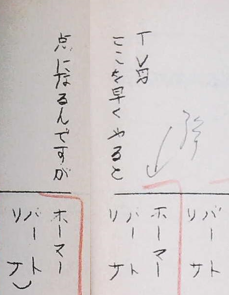 ここを早くやると
点になるんですが
バート
リサ
ホーマー
バート
リサ
ホーマー
バート
リサ)